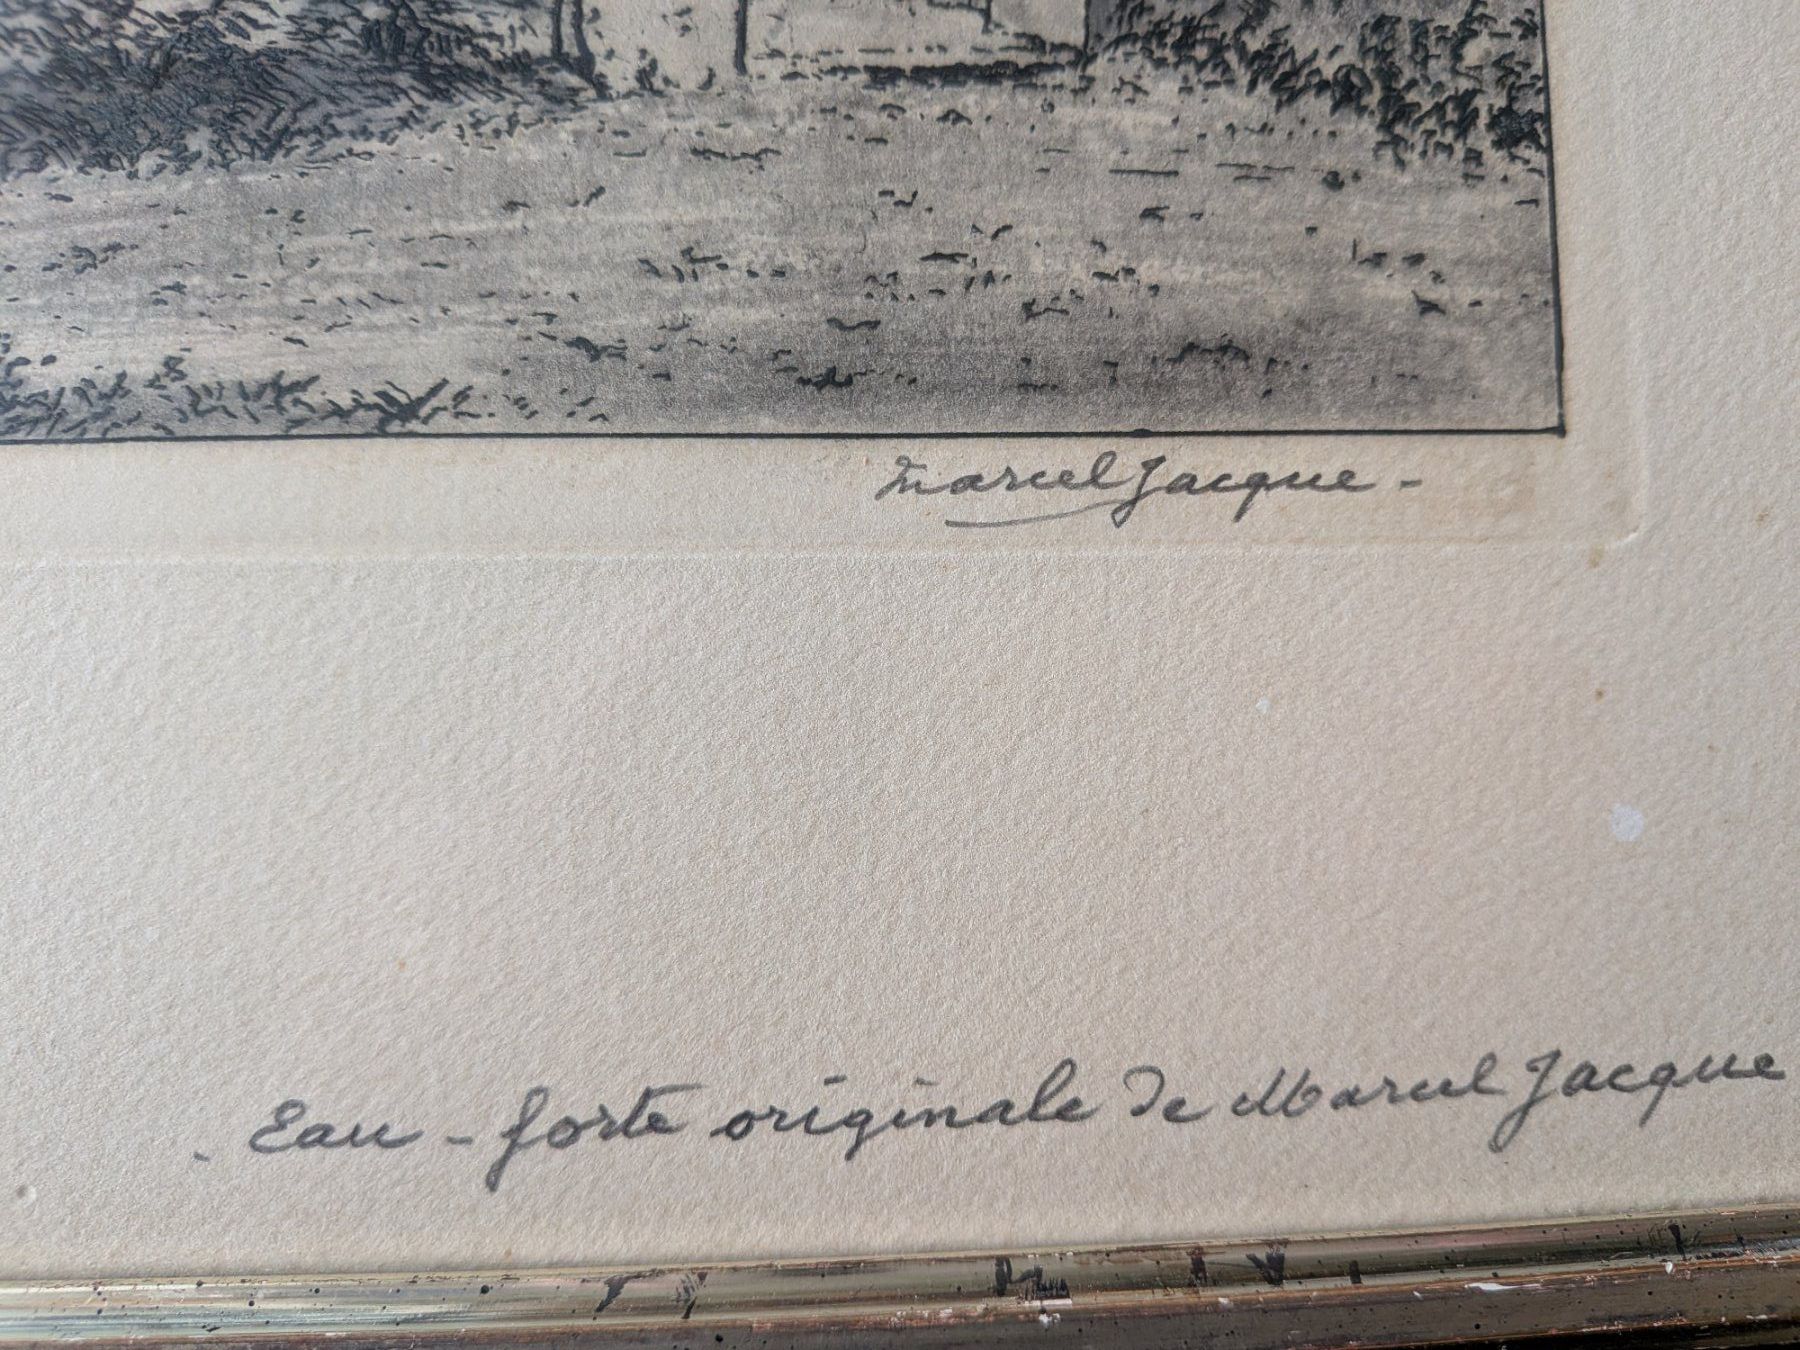 Marcel Jacque -
. Eau - forte originale de Marcel Jacque